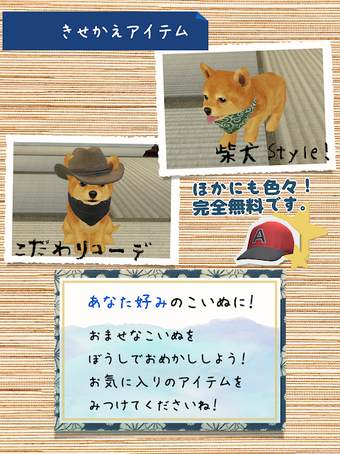 きせかえアイテム
柴犬 Style!
こだわりコーデ
ほかにも色々!
完全無料です。
A
あなた好みのこいぬに!
おませなこいぬを
ぼうしでおめかししよう!
お気に入りのアイテムを
みつけてくださいね!